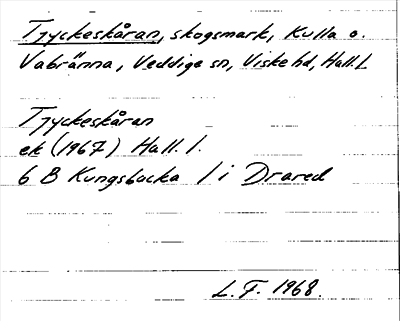 Tjyckeskåran, skogsmark, Kulla o.
Vabränna, Veddige sn, Viske hd, Hall. l.
Tjyckeskåran
ek (1967) Hall. l.
6 B Kungsbacka 1 i Drared
L. F. 1968